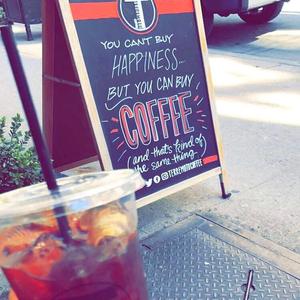 YOU CAN'T BUY
HAPPINESS...
BUT YOU CAN BUY
COFFEE
(and that's kind of
the same thing)